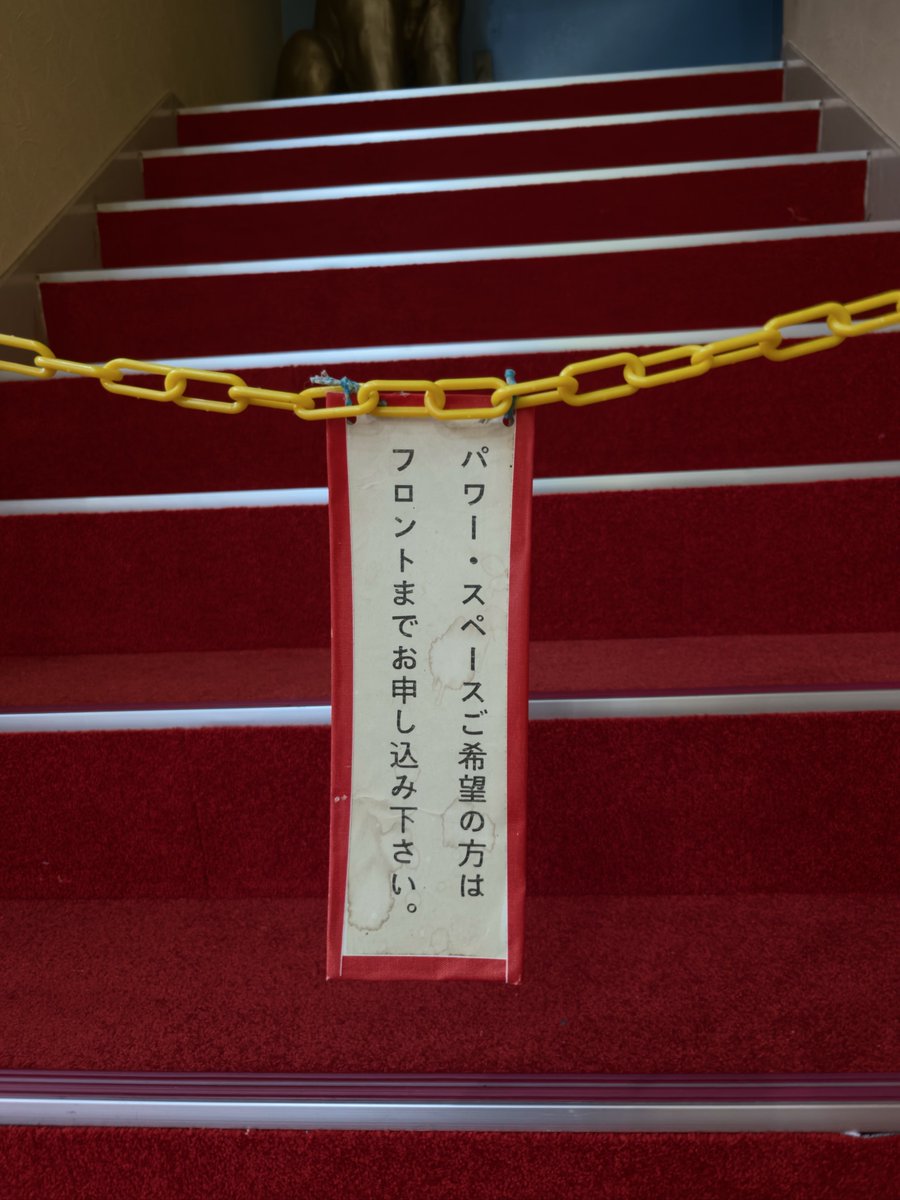 パワー・スペースご希望の方は
フロントまでお申し込み下さい。